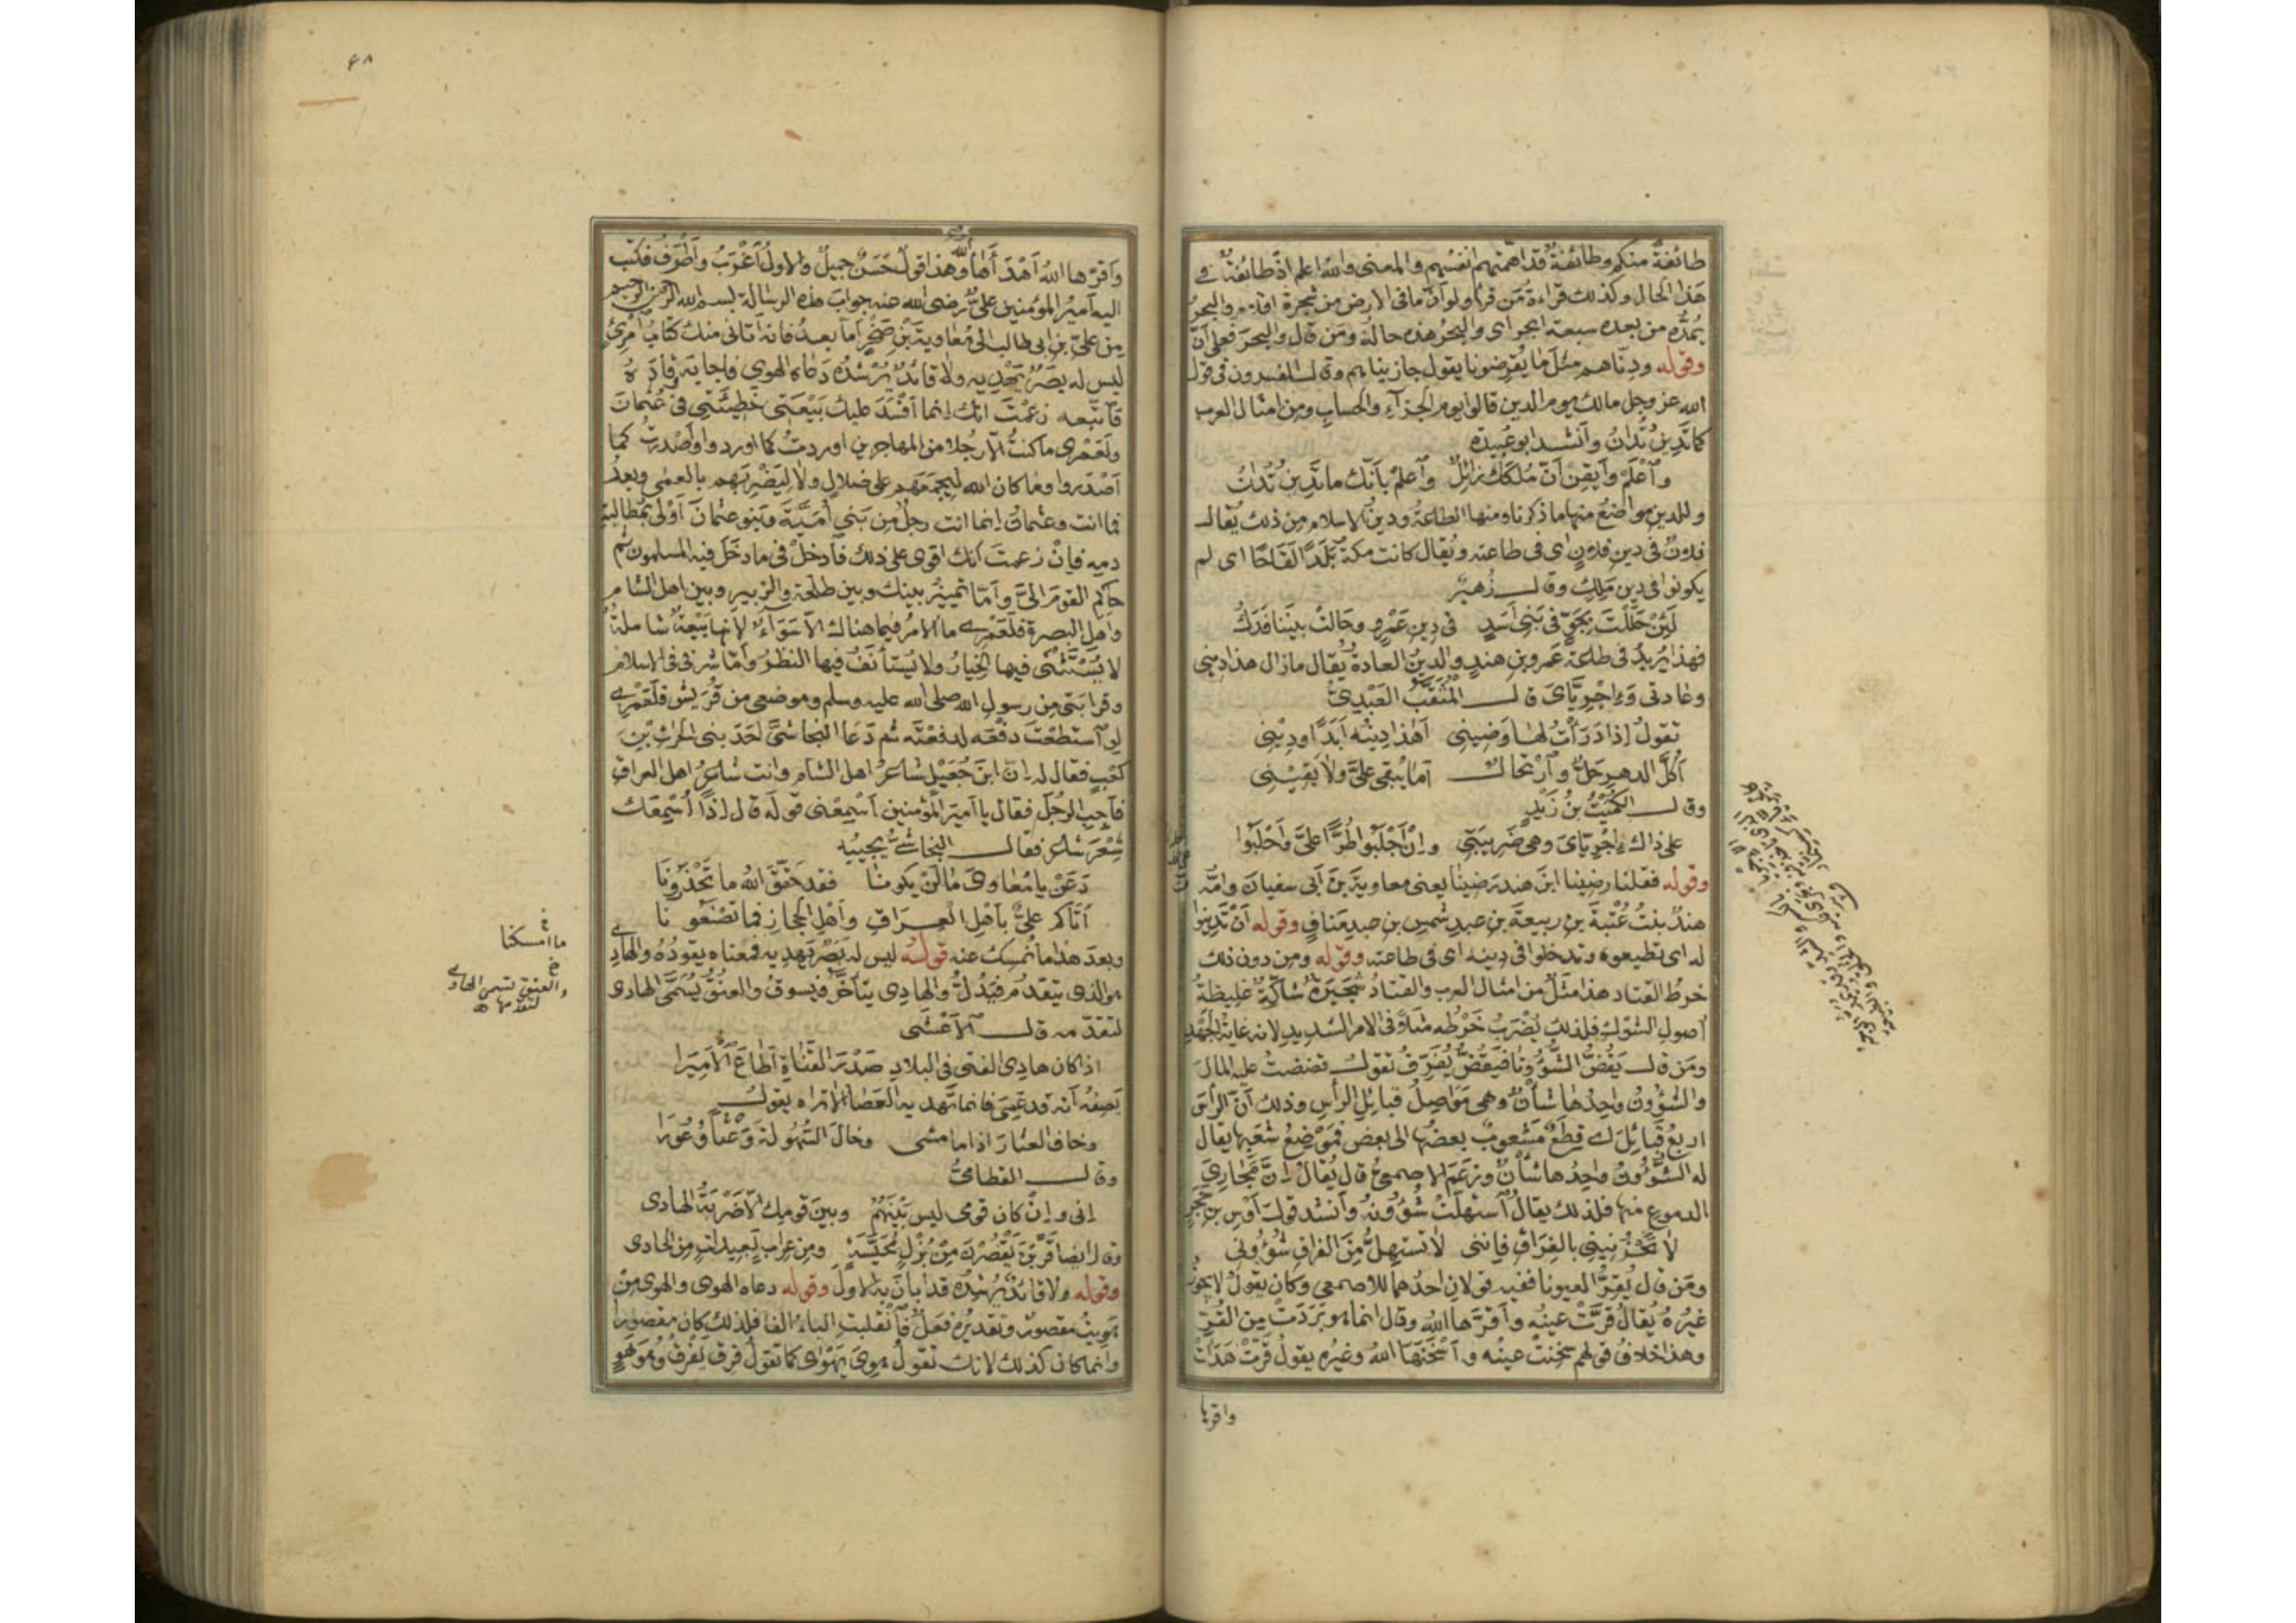 طائفةً منكم وطائفةٌ قد اهمّتهم انفسُهم والمعنى والله اعلم اذ طائفةٌ في
هذا الحال وكذلك قراءةُ مَن قرأ ولو أنّ ما فى الارض من شجرة اقلام والبحرُ
يمدُّه من بعده سبعة ابحر اى والبحرُ هذه حالهُ ومَن قال والبحرَ فعلى أنّ
وقوله ودِنّاهم مثلَ ما يُقرِضونا يقول جازيناهم وقال المفسرون فى قول
الله عز وجل مالك يوم الدين قالوا يوم الجزآءِ والحسابِ ومن امثال العرب
كما تَدِينُ تُدَانُ وأنشد ابو عُبيدة
وٱعْلَمْ وأَيقِنْ أنّ مُلكَكَ زائِلٌ وٱعلمْ بأنّك ما تَدِينُ تُدَانُ
وللدين مواضعُ منها ما ذكرنا ومنها الطاعةُ ودينُ الاسلام من ذلك يُقال
فلانٌ فى دين فلانٍ اى فى طاعته ويُقال كانت مكةُ بَلَدًا لَقَاحًا اى لم
يكونوا فى دين مَلِكٍ وقال زُهيرٌ
لَئِنْ حَلَلْتَ بِجَوٍّ فى بَنِى أسَدٍ فى دِينِ عَمْرٍو وحَالتْ بيننا فَدَكُ
فهذا يُريدُ فى طاعة عَمرو بن هندٍ والدِينُ العادةُ يُقال ما زال هذا دِينى
وعادتى وَإِجْرِيَّاىَ قال المُثَقَّبُ العَبْدِىُّ
تقولُ إذا دَرَأْتُ لها وَضِينى أهٰذا دِينُه أَبَدًا ودِيْنِى
أكُلَّ الدهرِ حَلٌّ وٱرْتحالٌ أمَا يُبْقى علىَّ ولا يَقِيْنِى
وقال الكُمَيْتُ بنُ زَيْدٍ
على ذاك إجْرِيّاىَ وهى ضَرِيبَتِى وإنْ أجْلَبُوا طُرًّا علىَّ وَأحْلَبُوا
وقوله فقلنا رضِينا ابنَ هند رَضِينا يعنى معاوية بنَ أبى سفيان وأمّه
هندُ بنتُ عُتْبَةَ بنِ ربيعةَ بنِ عبدِ شمسِ بنِ عبدِ مَنافٍ وقوله أنْ تَدِينوا
له اى تطيعوه وتدخلوا فى دينه اى فى طاعته وقوله ومن دون ذلك
خرطُ القتاد هذا مثَلٌ من امثال العرب والقتادُ شُجَيرَةٌ شاكّةٌ غليظةُ
أصولِ الشوْك فلذلك يُضْرَبُ خَرْطُه مثلًا فى الامر الشديدِ لانه غايةُ الجَهْد
ومَن قال يَفُضُّ الشُؤُونا فيَفُضُّ يُفَرِّقُ تقول فضضتُ عليه المالَ
والشؤونُ واحِدُها شأنٌ وهى مَوَاصِلُ قبائل الرأس وذلك أنّ للرأس
اربعُ قبائِلَ اى قِطَعٌ مَشعوبٌ بعضُها الى بعض فمَوْضِعُ شَعْبِها يقال
له الشُؤُونُ واحِدُها شأنٌ وزعَمَ الاصمعىُّ قال يُقالُ إنّ مجارِىَ
الدموع منها فلذلك يقالُ ٱستهلّتْ شُؤُونُه وأنشد قولَ أَوس بن حَجَرٍ
لا تَحْزُنِينِى بالفِراقِ فإننى لا تستهِلُّ مِنَ الفراقِ شُؤونى
ومَن قال يُقِرُّ العيونا ففيه قولان احدُهما للاصمعى وكان يقولُ لا يجوزُ
غيرُه يُقالُ قرَّتْ عينُه وأقرَّها الله وقال انما هو بَرَدَتْ مِن القُرّ
وهذا خلافُ قولهم سَخِنتْ عينُه وأَسْخَنَها اللهُ وغيرُه يقولُ قَرّتْ هَدَأَتْ
واقرها
۴۸
وأقرّها اللهُ أهْدَأها اللّٰه وهذا قولٌ حَسَنٌ جميلٌ والاولُ أغْرَبُ وأَطْرَفُ فكتب
اليه أميرُ المؤمنين علىٌّ رضى الله عنه جوابَ هذه الرسالة بسم الله الرحمن الرحيم
مِن علىِّ بن ابى طالب الى مُعاويةَ بْنِ صَخْرٍ أما بعدُ فانه أتانى منك كتابُ ٱمْرِئٍ
ليس له بصَرٌ يَهْدِيه ولا قائدٌ يُرْشدُه دَعاه الهوى فاجابَه وقادَهُ
فاتّبعه زعَمْتَ انّك إنما أفسَدَ عليك بَيْعَتى خَطِيئَتِى فى عُثمانَ
ولَعَمْرى ما كنتُ إلّا رجُلا من المهاجرين اوردتُ كما اوردوا وأصْدرتُ كما
أصْدَروا وما كان الله ليجمَعَهم على ضلالٍ ولا ليَضْرِبَهم بالعمٰى وبعدُ
فما انت وعثمانُ إنما انت رجلٌ مِن بنى أمَيّةَ وبَنو عثمانَ أوْلى بمُطالبةِ
دمِه فإنْ زعمتَ انّك اقوى على ذلك فٱدخلْ فى ما دخَلَ فيه المسلمون ثم
حاكِمِ القومَ إلىَّ وأمّا تمييزُ بينك وبين طلحةَ والزبيرِ وبين اهل الشام
واهلِ البصرةِ فلَعَمْرى ما الامرُ فيما هناك الّا سَوَآءٌ لأنها بَيْعةٌ شاملةٌ
لا يُسْتَثْنٰى فيها الخِيارُ ولا يُستأنَفُ فيها النظرُ وأمّا شَرفى فى الاسلام
وقرابَتى من رسول الله صلى الله عليه وسلم وموضِعى من قُرَيشٍ فلَعَمْرى
لو ٱستطعْتَ دفْعَه لدفعْتَه ثم دَعَا النجاشىَّ أحَدَ بنى الحرث بْن
كعبٍ فقال له إنّ ابنَ جُعَيْلٍ شاعرُ اهل الشام وانت شاعرُ اهل العراقِ
فأجبِ الرجُلَ فقال يا أميرَ المؤمنين أسْمِعْنى قولَه قال إذًا أُسْمِعَك
شِعْرَ شاعرٍ فقال النجاشىُّ يُجيبُه
دَعَنْ يا مُعاوِىَ ما لَنْ يكونا فقد حَقّقَ اللهُ ما تَحْذَرُونَا
أتَاكم علىٌّ بأهْلِ العِرَاقِ وأهْلِ الحجازِ فما تصْنَعُونا
وبعدَ هذا ما نُمسِك عنه قولُه ليس له بَصَرٌ يَهدِيه فمعناه يقودُه والهادِى
هو الذى يتقدّمُ فيَدُلُّ والهادِى يتأخّرُ فيسوقُ والعنُقُ يُسَمَّى الهادى
لتقدّمه قال الأعْشَى
اذا كان هادِى الفتى فى البلادِ صَدْرَ القَناةِ أطاعَ الأميرَا
يَصِفُ أنه قد عَمِىَ فانما تَهْديه العَصَا ألا تراه يقول
وخافَ العِثارَ اذا ما مشى وخالَ السُّهُولةَ وَعْثًا وُعُورَا
وقال القطامىُّ
إنى وإنْ كان قومى ليس بَيْنَهُمْ وبينَ قومِك إلّا ضَرْبةُ الهادى
وقال أيضا قَرَّبْنَ يَقْصُرْنَ مِن بُزْلٍ مُخَيَّسَةٍ ومِن عِرابٍ بعيداتٍ مِن الحادى
وقوله ولا قائدٌ يُرْشِدُه قد أبانَ به الأوّل وقوله دعاه الهوى والهوى من
هَوِيتُ مقصورٌ وتقديرُه فَعَلٌ فٱنقلبتِ الياءُ الفا فلذلك كان مقصورا
وانما كان كذلك لانك تقولُ هوِىَ يَهْوَى كما تقولُ فرِقَ يَفْرَقُ وهو هَوٍ
ما امسكنا
والعنق تسمى الهادى
لتقدمها